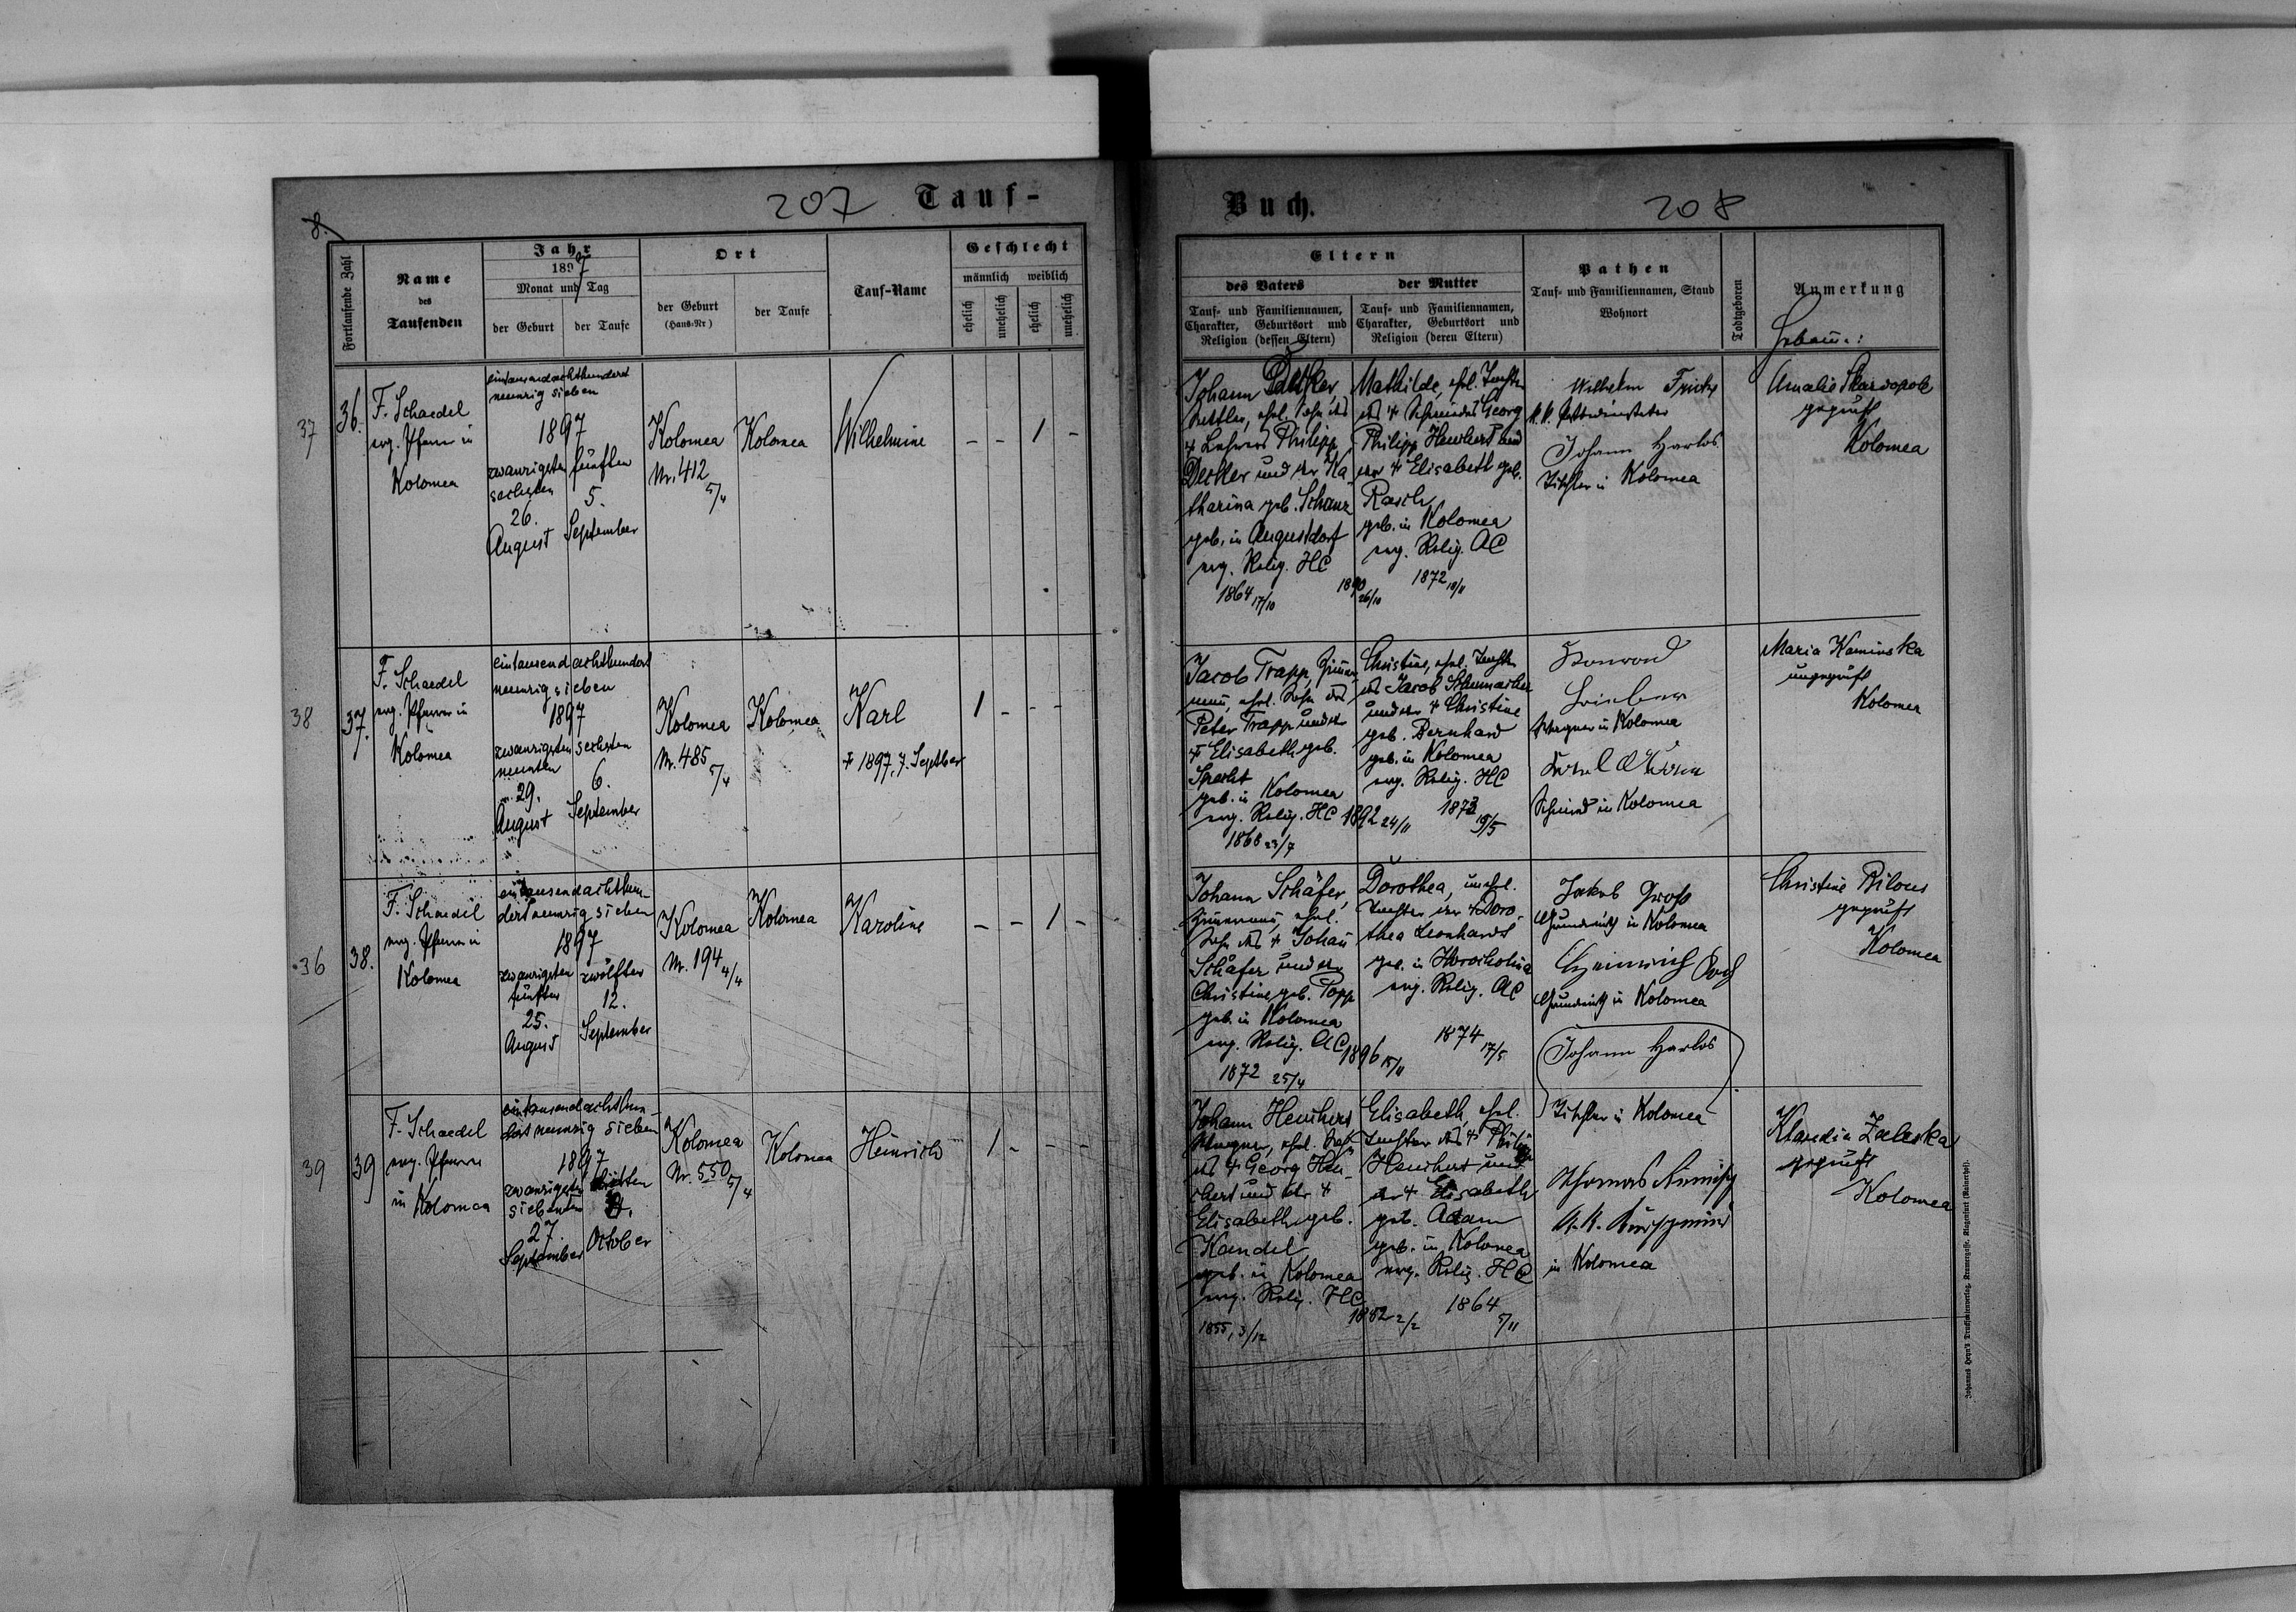 207 Tauf-
8.
Fortlaufende Zahl
Name
des
Taufenden
Jahr
1897
Monat und Tag
der Geburt
der Taufe
Ort
der Geburt
(Haus-Nr)
der Taufe
Tauf-Name
Geschlecht
männlich weiblich
ehelich
unehelich
ehelich
unehelich
37
36.
F. Schaedel
evg. Pfarrer in
Kolomea
eintausendachthundert
neunzig sieben
1897
zwanzigsten
sechsten
26.
August
fünften
5.
September
Kolomea
Nr. 412
5/4
Kolomea
Wilhelmine
- - 1 -
38
37.
F. Schaedel
evg. Pfarrer in
Kolomea
eintausend achthundert
neunzig sieben
1897
zwanzigsten
neunten
29.
August
sechsten
6.
September
Kolomea
Nr. 485
5/4
Kolomea
Karl
+ 1897, 7. Septber
1 - - -
36
38.
F. Schaedel
evg. Pfarrer in
Kolomea
eintausendachthun-
dert neunzig sieben
1897
zwanzigsten
fünften
25.
August
zwölften
12.
September
Kolomea
Nr. 194
4/4
Kolomea
Karoline
- - 1 -
39
39
F. Schaedel
evg. Pfarrer
in Kolomea
eintausendachthun-
dert neunzig sieben
1897
zwanzigsten
siebenten
27.
September
October
Kolomea
Nr. 550
5/4
Kolomea
Heinrich
1 - - -
Buch. 208
Eltern
des Vaters
Tauf- und Familiennamen,
Charakter, Geburtsort und
Religion (dessen Eltern)
der Mutter
Tauf- und Familiennamen,
Charakter, Geburtsort und
Religion (deren Eltern)
Pathen
Tauf- und Familiennamen, Stand
Wohnort
Todtgeboren
Anmerkung
Hebam̄e:
Johann
ehel. Sohn des
+ Lehrers Philipp
Decker und der Ka-
tharina geb. Schanz
geb. in Augustdorf
evg. Relig. HC
1864 17/10
1890
26/10
Mathilde, ehel. Tochter
des + Schmiedes Georg
Philipp Heuchert und
der + Elisabeth geb.
Rasch
geb. in Kolomea
evg. Relig. AC
1872 18/11
Wilhelm Fricke
Johann Harlos
Tischler in Kolomea
Amalie Skarzopole
geprüft
Kolomea
Jacob Trapp, Zim̄er-
man̄, ehel. Sohn des
Peter Trapp und der
+ Elisabeth geb.
Specht
geb. in Kolomea
evg. Relig. HC
1868 23/7
1892 24/11
Christine, ehel. Tochter
des Jacob Schumacher
und der + Christine
geb. Bernhard
geb. in Kolomea
evg. Relig. HC
1873
19/5
Konrad
Wagner in Kolomea
Schmied in Kolomea
Maria Kaminska
ungeprüft
Kolomea
Johann Schäfer,
Zim̄erman̄, ehel.
Sohn des + Johan̄
Schäfer und der
Christine geb. Popp
geb. in Kolomea
evg. Relig. AC
1872 25/4
1896 15/11
Dorothea, unehel.
Tochter der + Doro-
thea Leonhardt
geb. in
evg. Relig. AC
1874
17/5
Jakob Groß
Grundwirth in Kolomea
Heinrich
Grundwirth in Kolomea
Johann Harlos
Tischler in Kolomea
Christine Bilous
geprüft
Kolomea
Johann Heuchert
Wagner, ehel. Sohn
des + Georg Heu-
chert und der +
Elisabeth geb.
Kandel
geb. in Kolomea
evg. Relig. HC
1855, 3/12
1882 2/2
Elisabeth, ehel.
Tochter des + Philipp
Heuchert und
der + Elisabeth
geb. Adam
geb. in Kolomea
evg. Relig. HC
1864
5/11
Thomas
in Kolomea
Klaudia Zaleska
geprüft
Kolomea